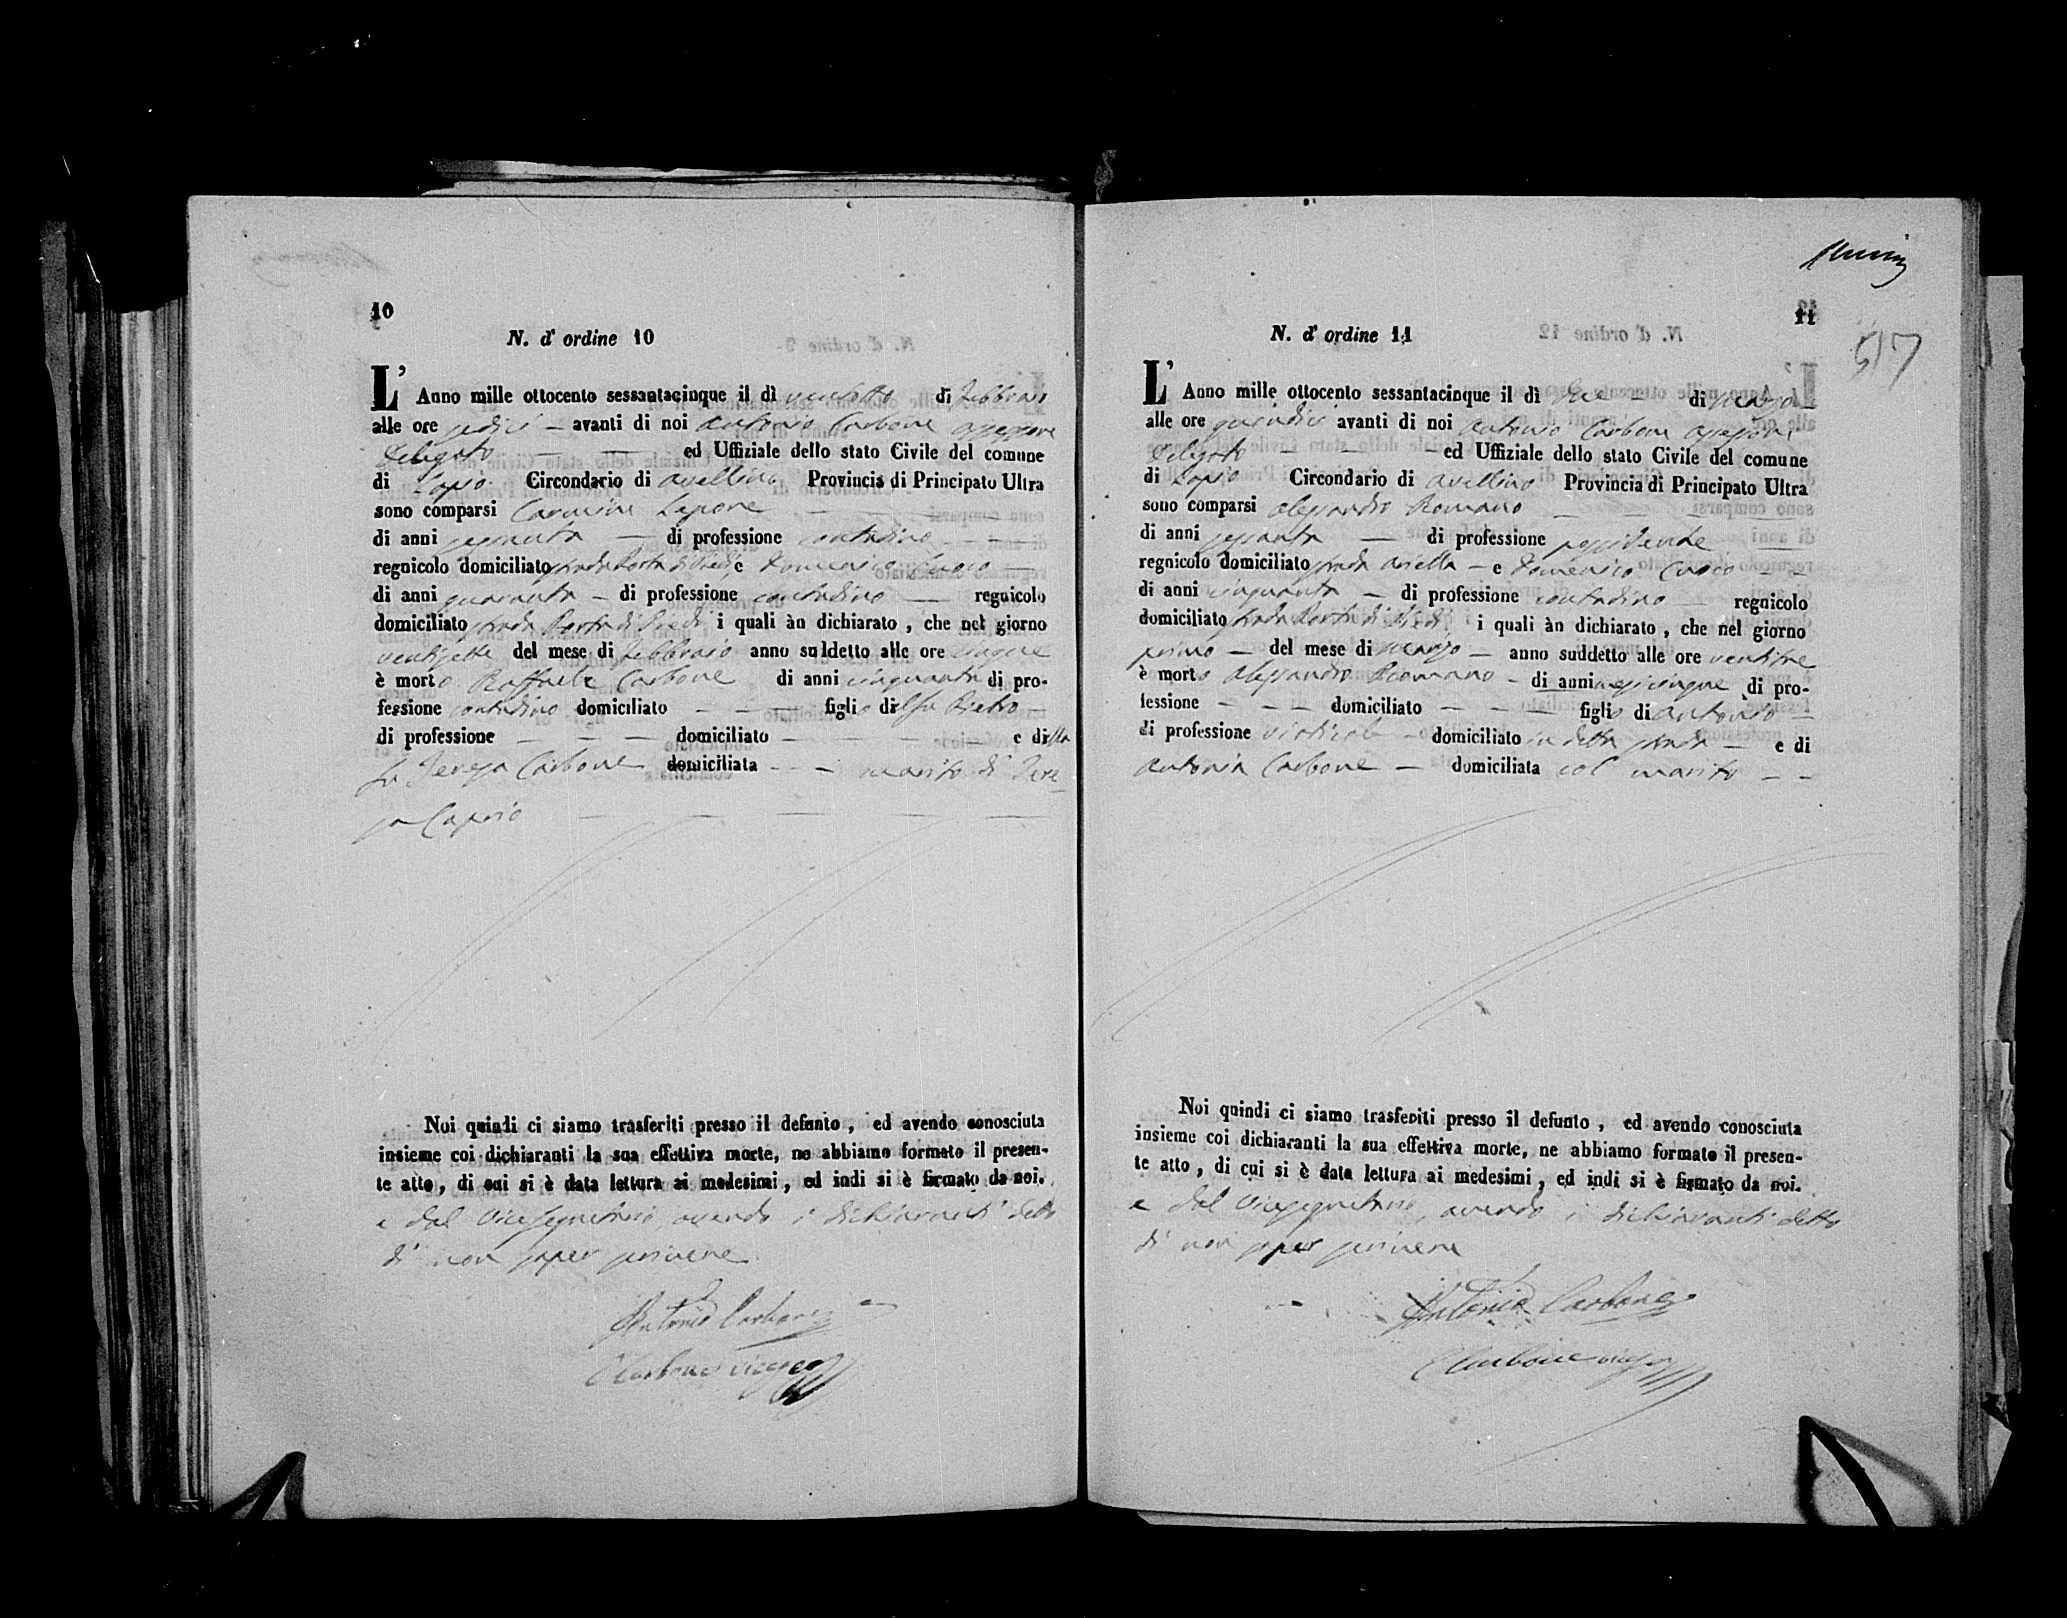 10
N. d' ordine 10
L' Anno mille ottocento sessantacinque il dì ventotto di Febbraio
alle ore sedici — avanti di noi Antonio Carbone assessore
Delegato — — ed Uffiziale dello stato Civile del comune
di Lapio Circondario di Avellino Provincia di Principato Ultra
sono comparsi Carmine Lepore — — — —
di anni sessanta — di professione contadino — — —
regnicolo domiciliato strada Porta di Piedi e Domenico Cuoco —
di anni quaranta — di professione contadino — regnicolo
domiciliato strada Porta di Piedi i quali àn dichiarato , che nel giorno
ventisette del mese di Febbraio anno suddetto alle ore cinque
è morto Raffaele Carbone di anni cinquanta di pro-
fessione contadino domiciliato — — — figlio del fu Pietro —
di professione — — — domiciliato — — — — e di lla
fu Teresa Carbone domiciliata — — marito di Tere
sa Caprio — — — — —
Noi quindi ci siamo trasferiti presso il defunto , ed avendo conosciuta
insieme coi dichiaranti la sua effettiva morte, ne abbiamo formato il presen-
te atto, di cui si è data lettura ai medesimi, ed indi si è firmato da noi.
e dal Vicesegretario, avendo i dichiaranti detto
di non saper scrivere
Antonio Carbone
Carbone viceseg
11
517
N. d' ordine 11
L' Anno mille ottocento sessantacinque il dì due — di Marzo
alle ore quindici avanti di noi Antonio Carbone assessore
Delegato — — — ed Uffiziale dello stato Civile del comune
di Lapio Circondario di Avellino Provincia di Principato Ultra
sono comparsi Alessandro Romano — — —
di anni sessanta — di professione possidente —
regnicolo domiciliato strada Ariella — e Domenico Cuoco — —
di anni cinquanta — di professione contadino — regnicolo
domiciliato strada Porta di Piedi i quali àn dichiarato , che nel giorno
primo — del mese di Marzo — anno suddetto alle ore ventitre
è morto Alessandro Romano — di anni mesi cinque di pro-
fessione — — — domiciliato — — — figlio di Antonio —
di professione — domiciliato in detta strada — e di
Antonia Carbone — domiciliata col marito — —
Noi quindi ci siamo trasferiti presso il defunto , ed avendo conosciuta
insieme coi dichiaranti la sua effettiva morte, ne abbiamo formato il presen-
te atto , di cui si è data lettura ai medesimi , ed indi si è firmato da noi.
e dal Vicesegretario, avendo i dichiaranti detto
di non saper scrivere
Antonio Carbone
Carbone viceseg